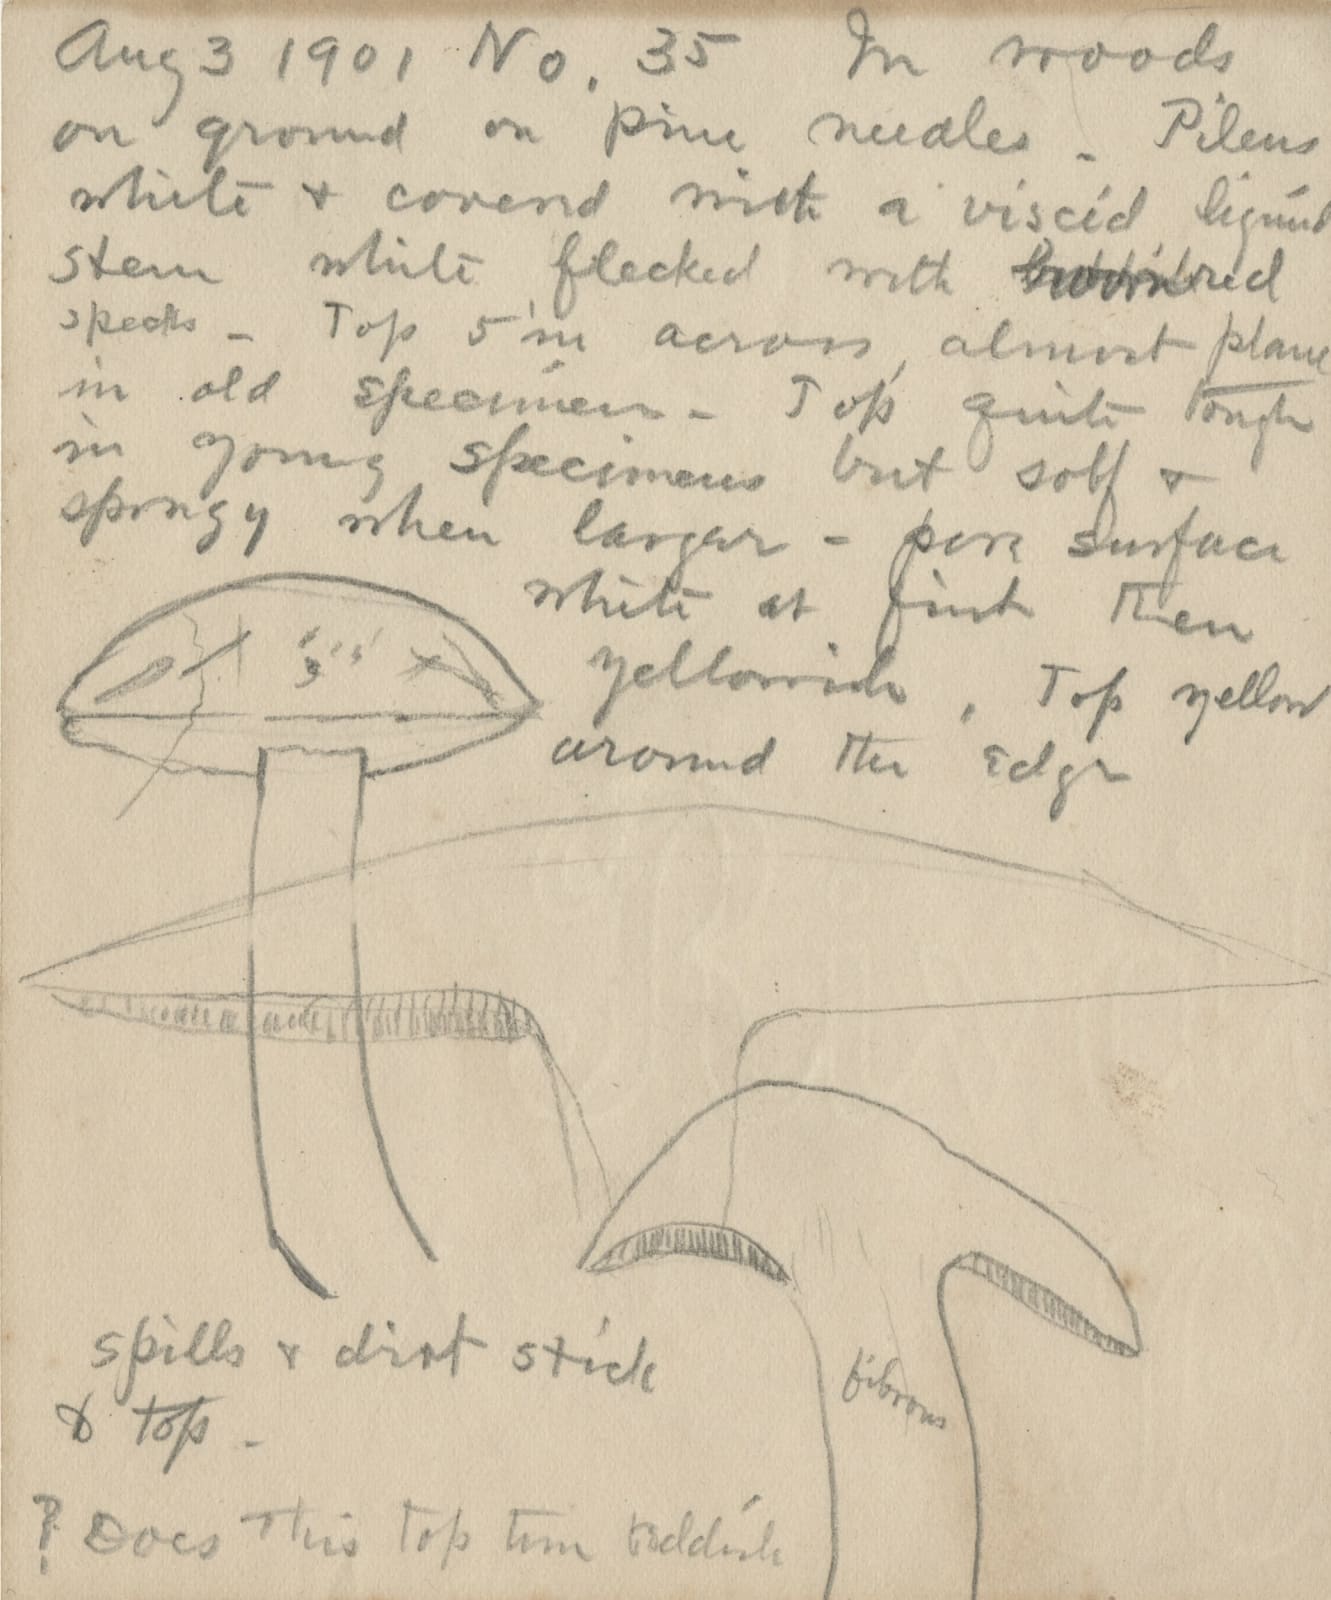 Aug 3 1901 No. 35 In woods
on ground on pine needles - Pileus
white & covered with a viscid liquid
stem white flecked with red
specks - Top 5 in across, almost plane
in old specimens - Top quite tough
in young specimens but soft &
spongy when larger - pore surface
white at first then
yellowish, Top yellow
around the edge
3"
fibrous
spills & dirt stick
to top -
? Does this top turn reddish